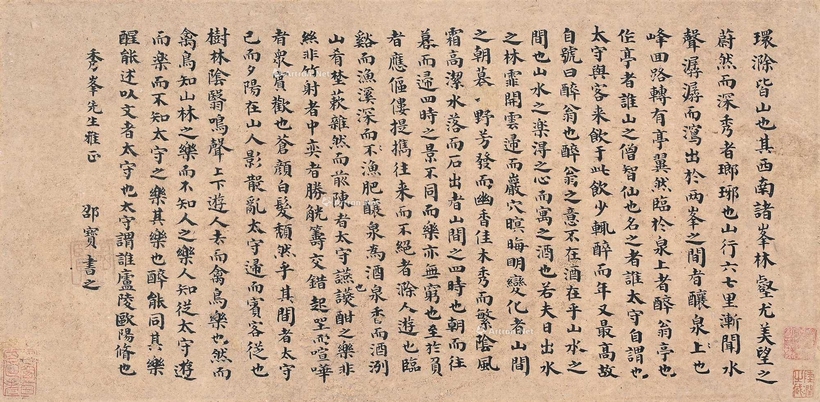 環滁皆山也其西南諸峯林壑尤美望之
蔚然而深秀者瑯琊也山行六七里漸聞水
聲潺潺而瀉出於兩峯之間者釀泉上也
峰回路轉有亭翼然臨於泉上者醉翁亭也
作亭者誰山之僧智仙也名之者誰太守自謂也
太守與客来飲于此飲少輒醉而年又最高故
自號曰醉翁也醉翁之意不在酒在乎山水之
間也山水之楽得之心而寓之酒也若夫日出水
之林霏開雲歸而巖穴暝晦明變化者山間
之朝暮野芳發而幽香佳木秀而繁陰風
霜高潔水落而石出者山間之四時也朝而往
暮而歸四時之景不同而樂亦無窮也至於負
者應傴僂提攜往来而不絕者滁人遊也臨
谿而漁溪深而不漁肥釀泉為酒泉香而酒洌
山肴埜蔌雜然而前陳者太守讌讌酣之樂非
絲非竹射者中奕者勝觥籌交錯起坐而喧嘩
者衆賓歡也蒼顏白髮頹然乎其間者太守
已而夕陽在山人影散亂太守歸而賓客從也
樹林陰翳鳴聲上下遊人去而禽鳥樂也然而
禽鳥知山林之樂而不知人之樂人知從太守遊
而樂而不知太守之樂其樂也醉能同其樂
醒能述以文者太守也太守謂誰廬陵歐陽脩也
秀峯先生雅正
邵寶書之